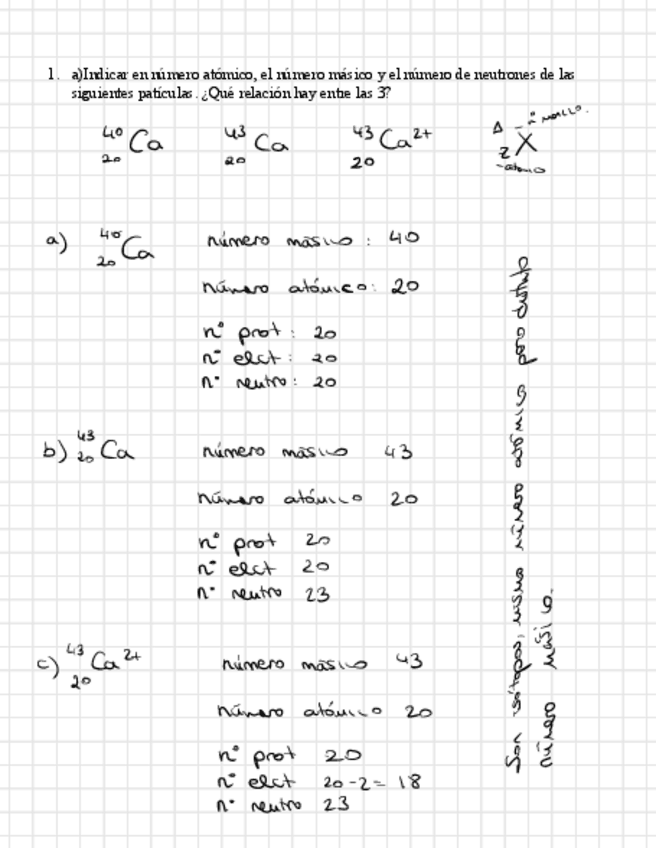 1. a)Indicar en número atómico, el número másico y el número de neutrones de las
siguientes patículas. ¿Qué relación hay entre las 3?
40 20 Ca 43 20 Ca 43 20 Ca 2+ A Z X - nº másico.
- atómico
a) 40 20 Ca número másico : 40
número atómico: 20
nº prot : 20
nº elct : 20
nº neutro : 20
b) 43 20 Ca número másico 43
número atómico 20
nº prot 20
nº elct 20
nº neutro 23
c) 43 20 Ca 2+ número másico 43
número atómico 20
nº prot 20
nº elct 20-2= 18
nº neutro 23
Son isótopos, mismo número atómico pero distinto
número másico.